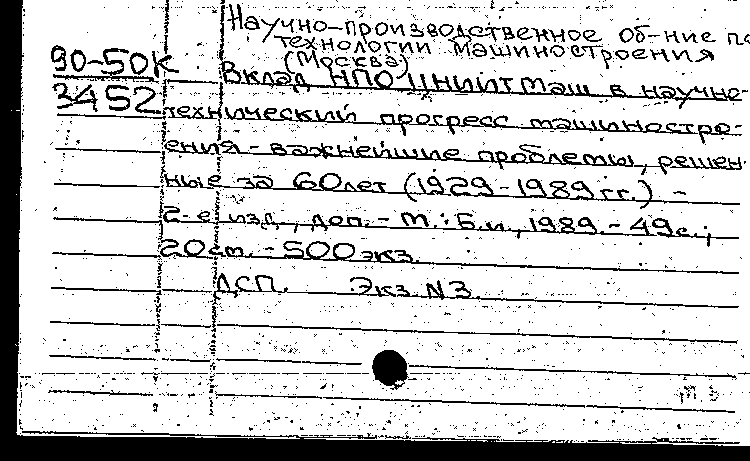 Научно-производственное об-ние по
технологии машиностроения
(Москва)
90-50К
3452
Вклад НПО ЦНИИТМаш в научно-
технический прогресс машиностро-
ения - важнейшие проблемы, решен-
ные за 60 лет (1929-1989 гг.) -
2-е изд., доп. - М.: Б.и., 1989. - 49 с.;
20 см. - 500 экз.
ДСП. Экз. N3.